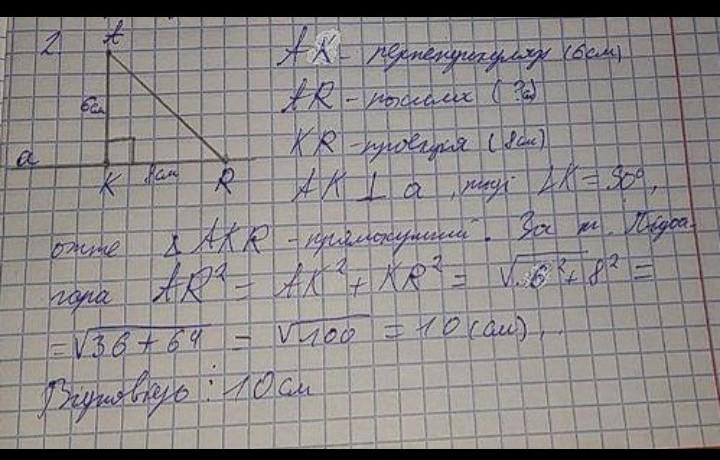 2.
A
6см
a
K
8см
R
AK - перпендикуляр (6см)
AR - похила (?см)
KR - проекція (8см)
AK ⊥ a, тоді ∠K = 90°,
отже △ AKR - прямокутний. За т. Піфа-
гора AR² = AK² + KR² = √6² + 8² =
= √36 + 64 = √100 = 10 (см)...
Відповідь: 10см